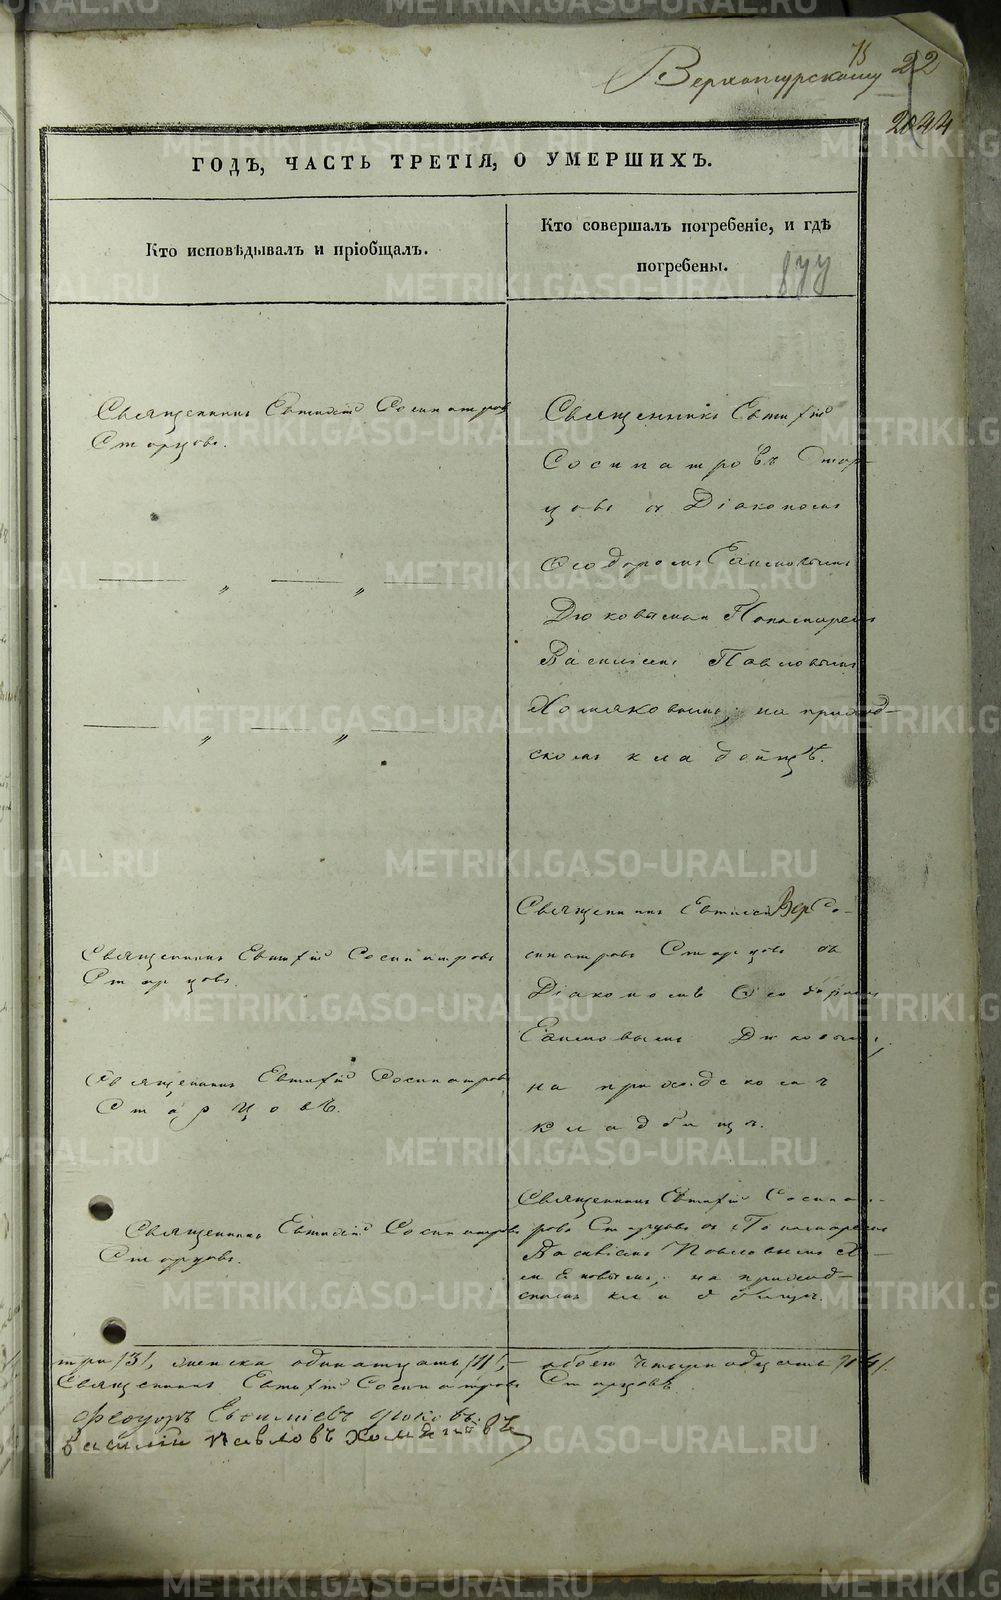 75
Верхотурскому 22
2044
ГОДЪ, ЧАСТЬ ТРЕТІЯ, О УМЕРШИХЪ.
Кто исповѣдывалъ и пріобщалъ.
Кто совершалъ погребеніе, и гдѣ
погребены.
Священникъ Евтихій Сосипатровъ
Старцовъ.
Священникъ Евтихій
Сосипатровъ Стар-
цовъ съ Діакономъ
Ѳеодоромъ
Дюковымъ Пономаремъ
Василіемъ Павловымъ
Хомяковымъ, на приход-
скомъ кладбищѣ.
Священникъ Евтихій Со-
Священникъ Евтихій Сосипатровъ
Старцовъ.
сипатровъ Старцовъ съ
Діакономъ Ѳеодоромъ
Дюковымъ,
Священникъ Евтихій Сосипатровъ
Старцовъ.
на приходскомъ
кладбищѣ.
Священникъ Евтихій Сосипат-
Священникъ Евтихій Сосипатровъ
Старцовъ.
ровъ Старцовъ съ Пономаремъ
Василіемъ Павловымъ Хо-
мяковымъ, на приход-
скомъ кладбищѣ.
три /3/, женска одинатцать /11/, обоего четырнадцать /14/.
Священникъ Евтихій Сосипатровъ Старцовъ
Дюковъ
Василій Павловъ Хомяковъ
METRIKI.GASO-URAL.RU